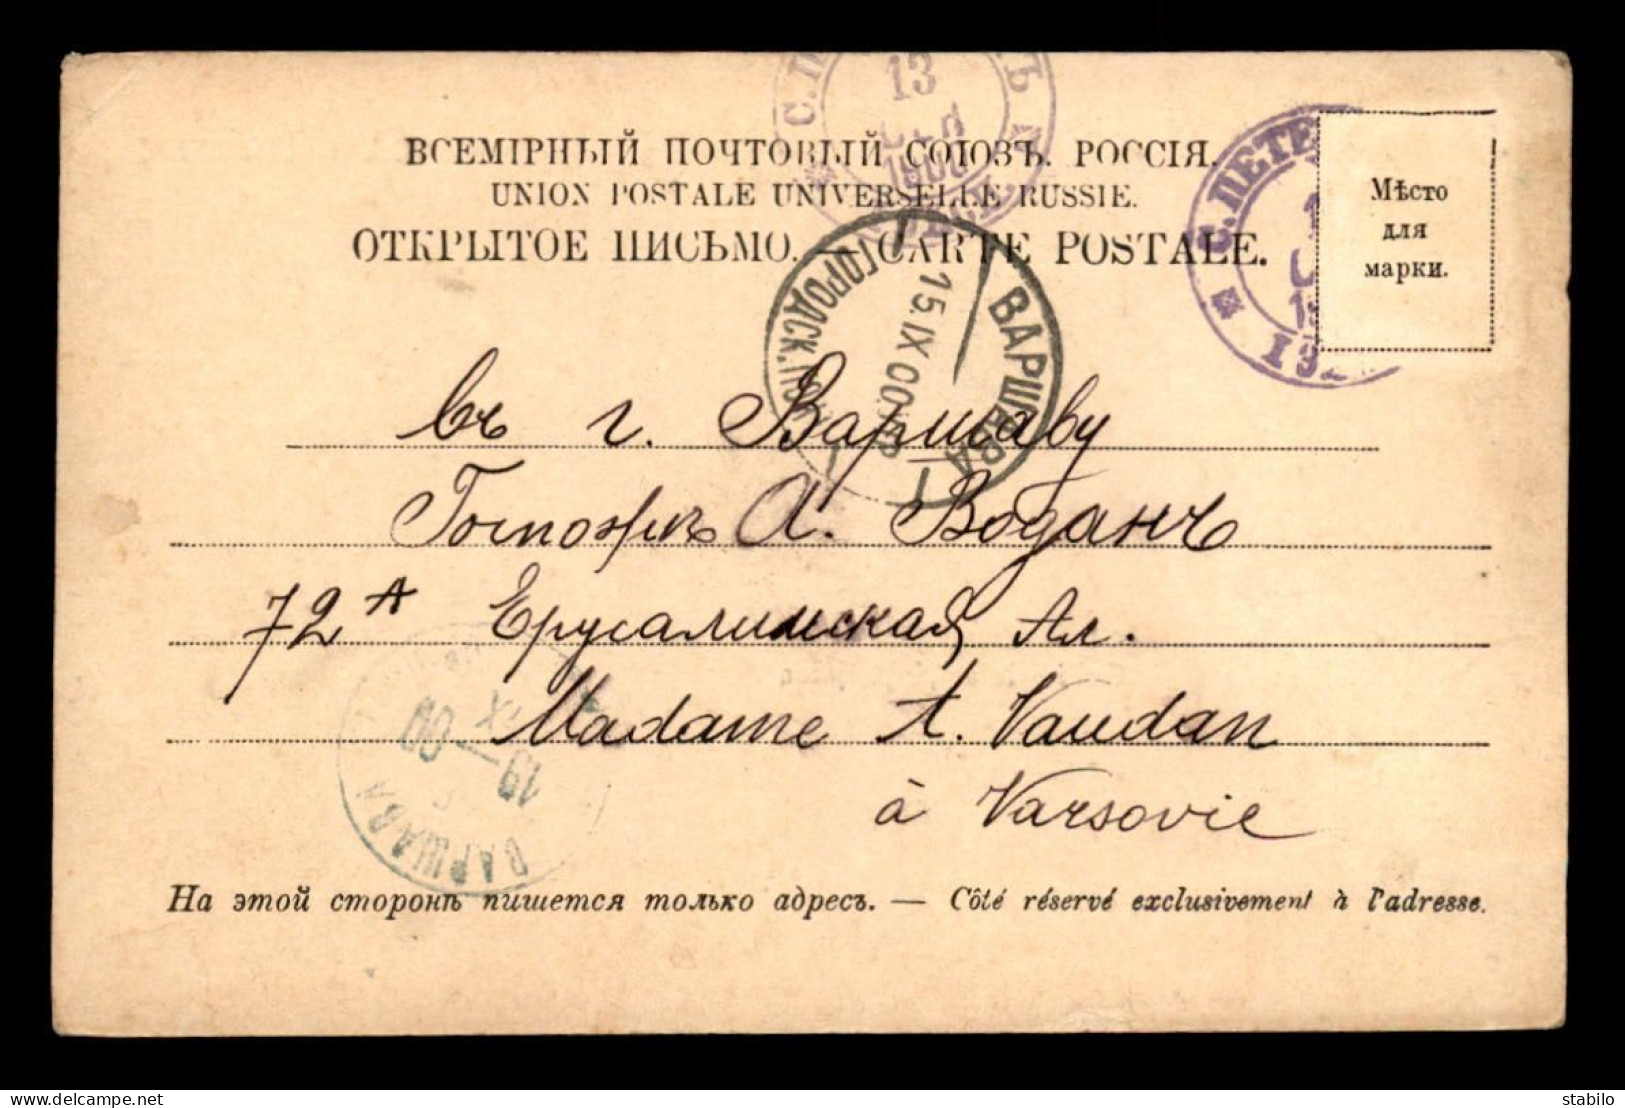 ВСЕМІРНЫЙ ПОЧТОВЫЙ СОЮЗЪ. РОССІЯ.
UNION POSTALE UNIVERSELLE RUSSIE.
ОТКРЫТОЕ ПИСЬМО. — CARTE POSTALE.
Мѣсто
для
марки.
С.ПЕТЕ
13
СЕН
1900
ВАРШАВА
15.IX 00
ГОРОДСК.
въ г. Варшаву
Госпожѣ А. Воданъ
72 А Ерусалимская Ал.
Madame A. Vaudan
à Varsovie
ВАРШАВА
19 IX 00
На этой сторонѣ пишется только адресъ. — Côté réservé exclusivement à l'adresse.
delcampe.net
stabilo